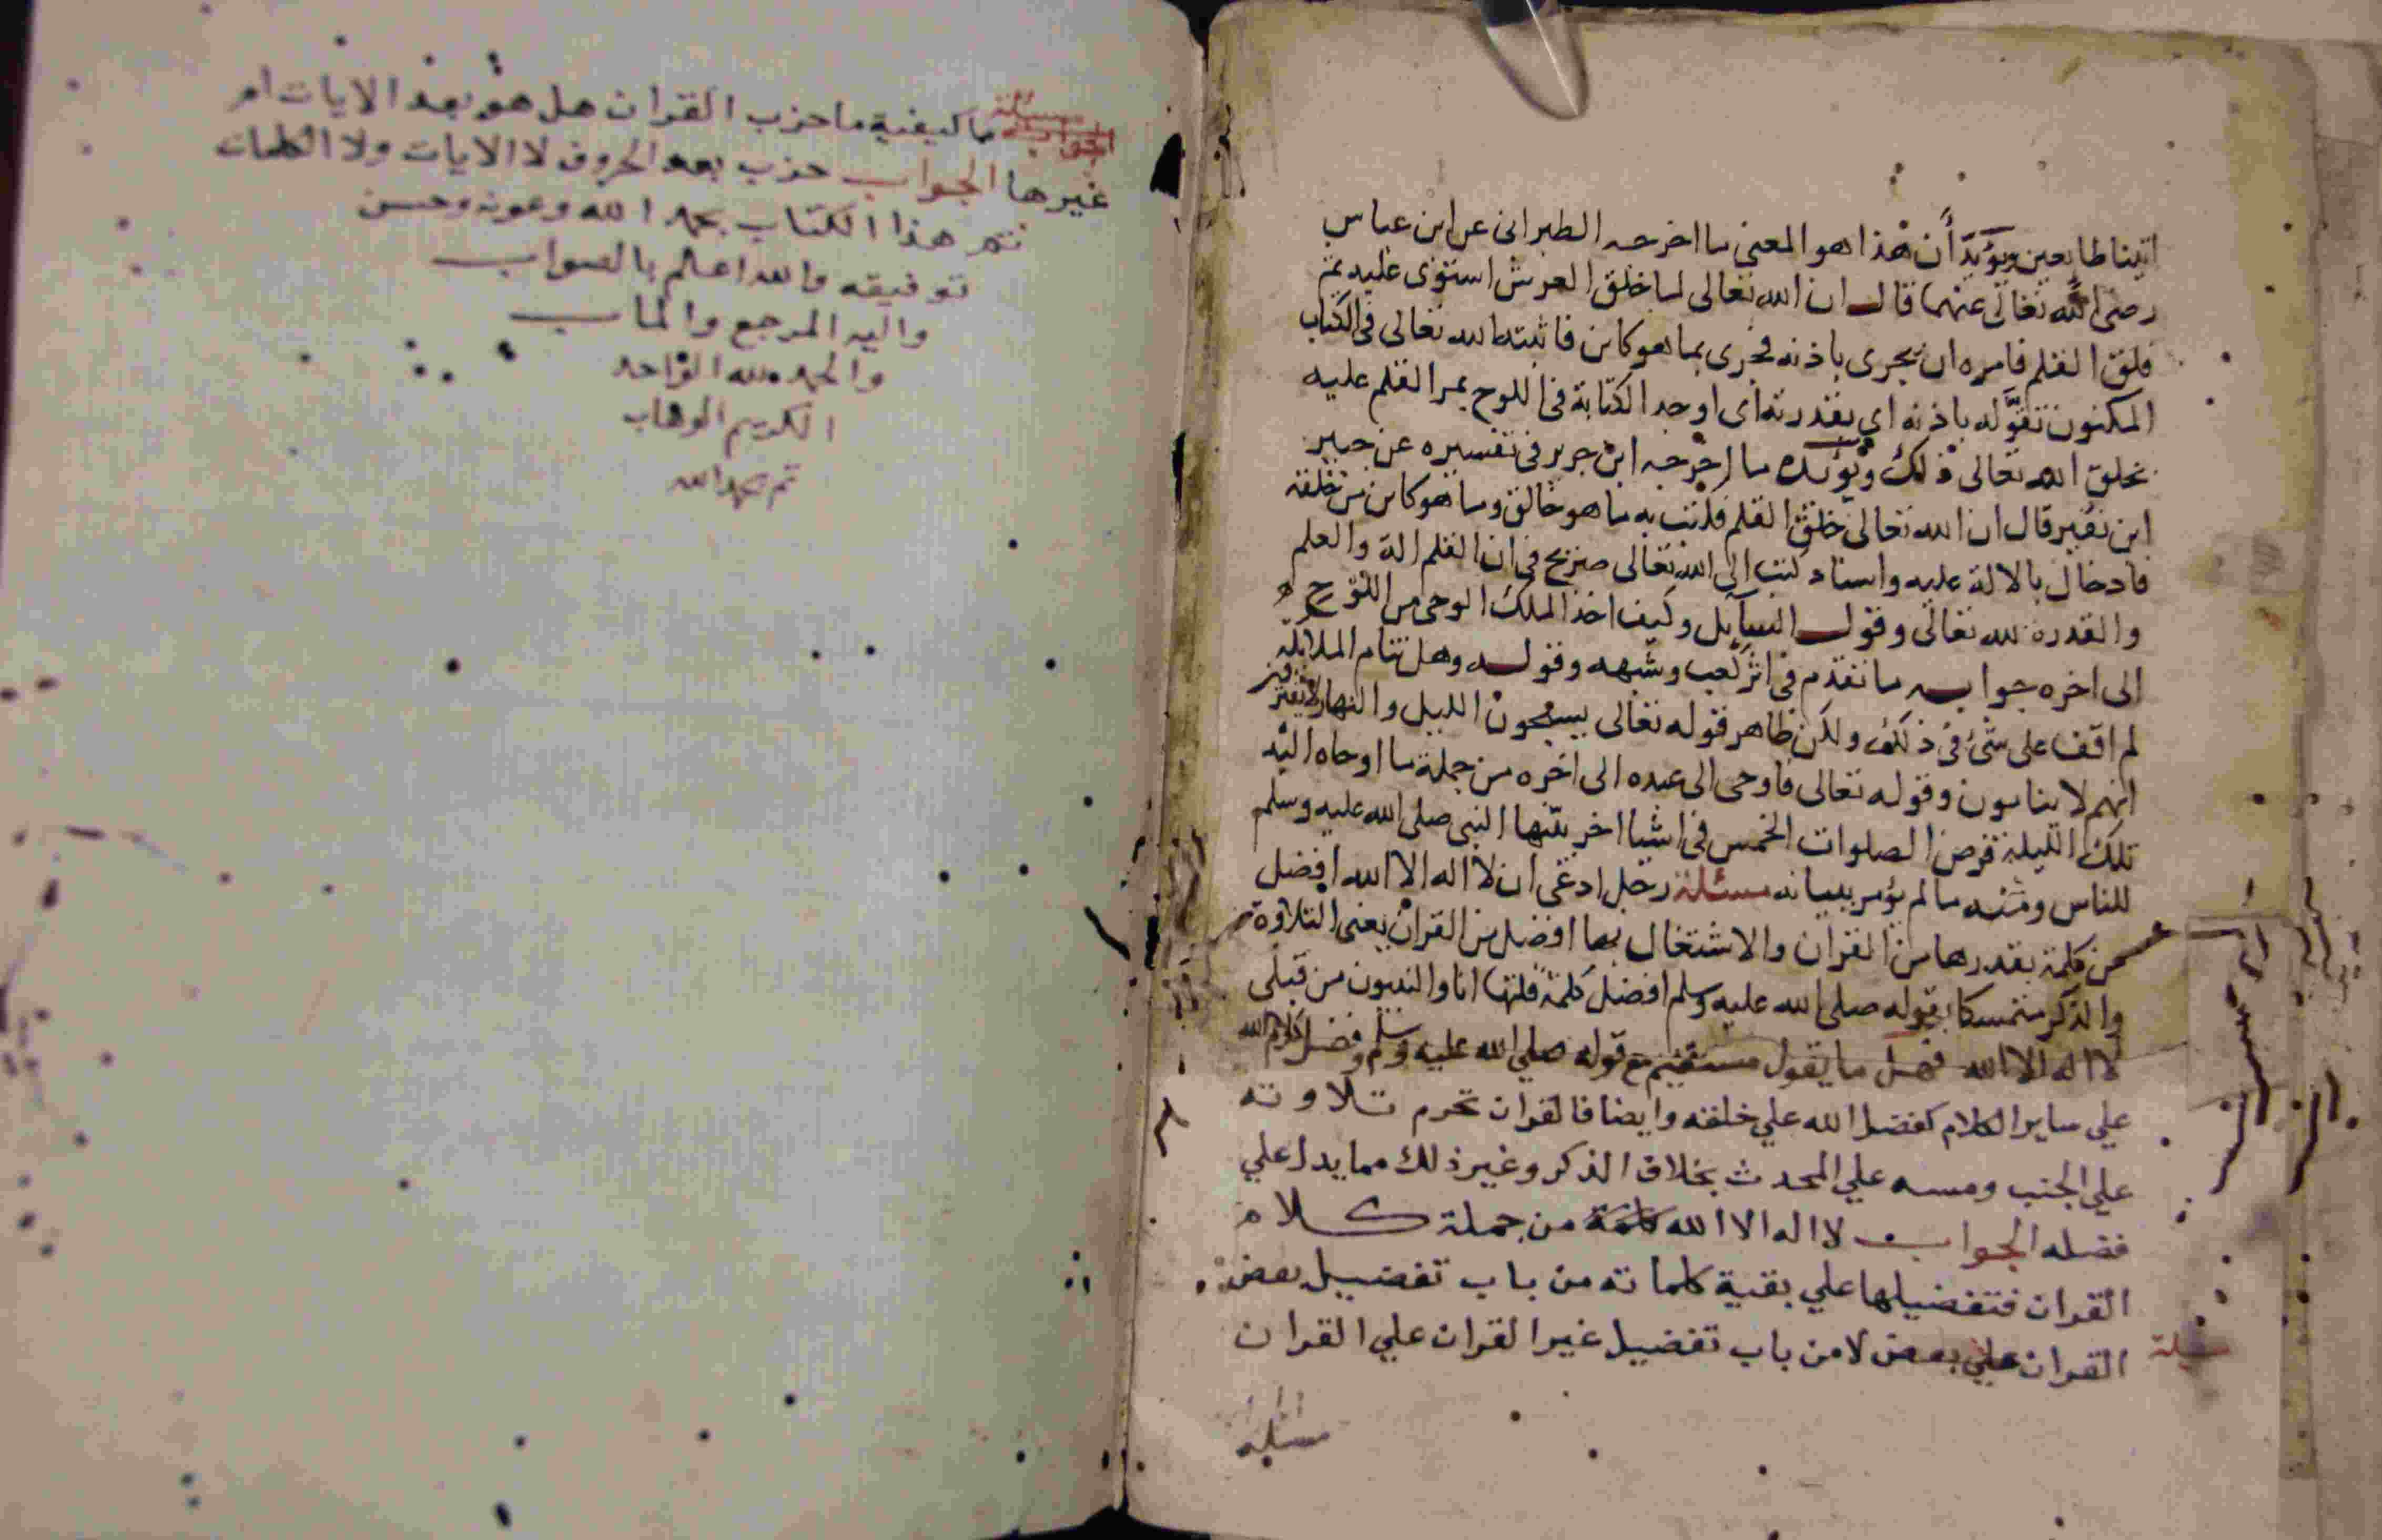 اتينا طايعين ويؤيد أن هذا هو المعنى ما اخرجه الطبرانى عن ابن عباس
رضى الله تعالى عنهما قال ان الله تعالى لما خلق العرش استوى عليه ثم
خلق القلم فامره ان يجرى باذنه فجرى بما هو كاين فاثبته الله تعالى فى الكتاب
المكنون فقوله باذنه اي بقدرته اى اوجد الكتابة فى اللوح بمر القلم عليه
بخلق الله تعالى ذلك ويؤيده ما اخرجه ابن جرير فى تفسيره عن جبير
ابن نفير قال ان الله تعالى خلق القلم فكتب به ما هو خالق وما هو كاين من خلقه
فادخال با الالة عليه واسناد كتب الى الله تعالى صريح فى ان القلم الة والعلم
والقدرة لله تعالى وقول السآيل وكيف اخذ الملك الوحى من اللوح
الى اخره جوابه ما تقدم فى اثر كعب وشبهه وقوله وهل تنام الملايكة
لم اقف على شئ فى ذلك ولكن ظاهر قوله تعالى يسبحون الليل والنهار لا يفترون
انهم لا ينامون وقوله تعالى فاوحى الى عبده الى اخره من جملة ما اوحاه اليه
تلك الليلة فرض الصلوات الخمس فى اشيا اخر بينها النبى صلى الله عليه وسلم
للناس ومنه ما لم يؤمر ببيانه مسئلة رجل ادعى ان لا اله الا الله افضل
من كلمة بقدرها من القران والاشتغال بها افضل من القران يعنى التلاوة
والذكر متمسكا بقوله صلى الله عليه وسلم افضل كلمة قلتها انا والنبيون من قبلى
لا اله الا الله فهل ما يقول مستقيم مع قوله صلي الله عليه وسلم وفضل كلام الله
علي ساير الكلام كفضل الله علي خلقه وايضا فالقران تحرم تلاوته
علي الجنب ومسه علي المحدث بخلاف الذكر وغير ذلك مما يدل علي
فضله الجواب لا اله الا الله كلمة من جملة كلام
القران فتفضيلها علي بقية كلماته من باب تفضيل بعض
القران علي بعض لا من باب تفضيل غير القران علي القران
مسئلة
مسئلة
مسئلة ما كيفية ما حزب القران هل هو بعد الايات ام
غيرها الجواب حزب بعد الحروف لا الايات ولا الكلمات
تم هذا الكتاب بحمد الله وعونه وحسن
توفيقه والله اعلم بالصواب
واليه المرجع والماب
والحمد لله الواحد
الكريم الوهاب
تم بحمد الله